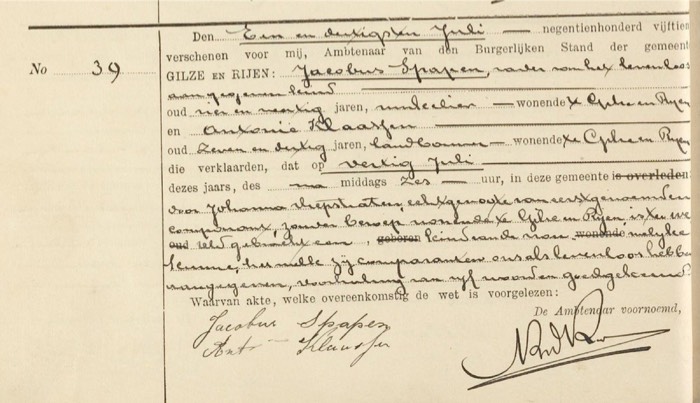 Den Een en dertigsten Juli — negentienhonderd vijftien
verschenen voor mij, Ambtenaar van den Burgerlijken Stand der gemeent
No 39 GILZE EN RIJEN: Jacobus Spapen, vader van het levenloos
aangegeven kind
oud vier en veertig jaren, — wonende te Gilze en Rijen
en Antonie Klaassen
oud Zeven en dertig jaren, landbouwer — wonende te Gilze en Rijen
die verklaarden, dat op dertig Juli
dezes jaars, des na middags zes — uur, in deze gemeente is overleden:
door Johanna echtgenoote van eerstgenoemden
comparant, zonder beroep wonende te Gilze en Rijen, is ter we
oud reld gebracht een geboren kind van de wonende
kunne, hetwelk zij comparanten ons als levenloos hebben
aangegeven, van vijf woorden goedgekeurd.
Waarvan akte, welke overeenkomstig de wet is voorgelezen:
De Ambtenaar voornoemd,
Jacobus Spapen
Ant Klaassen